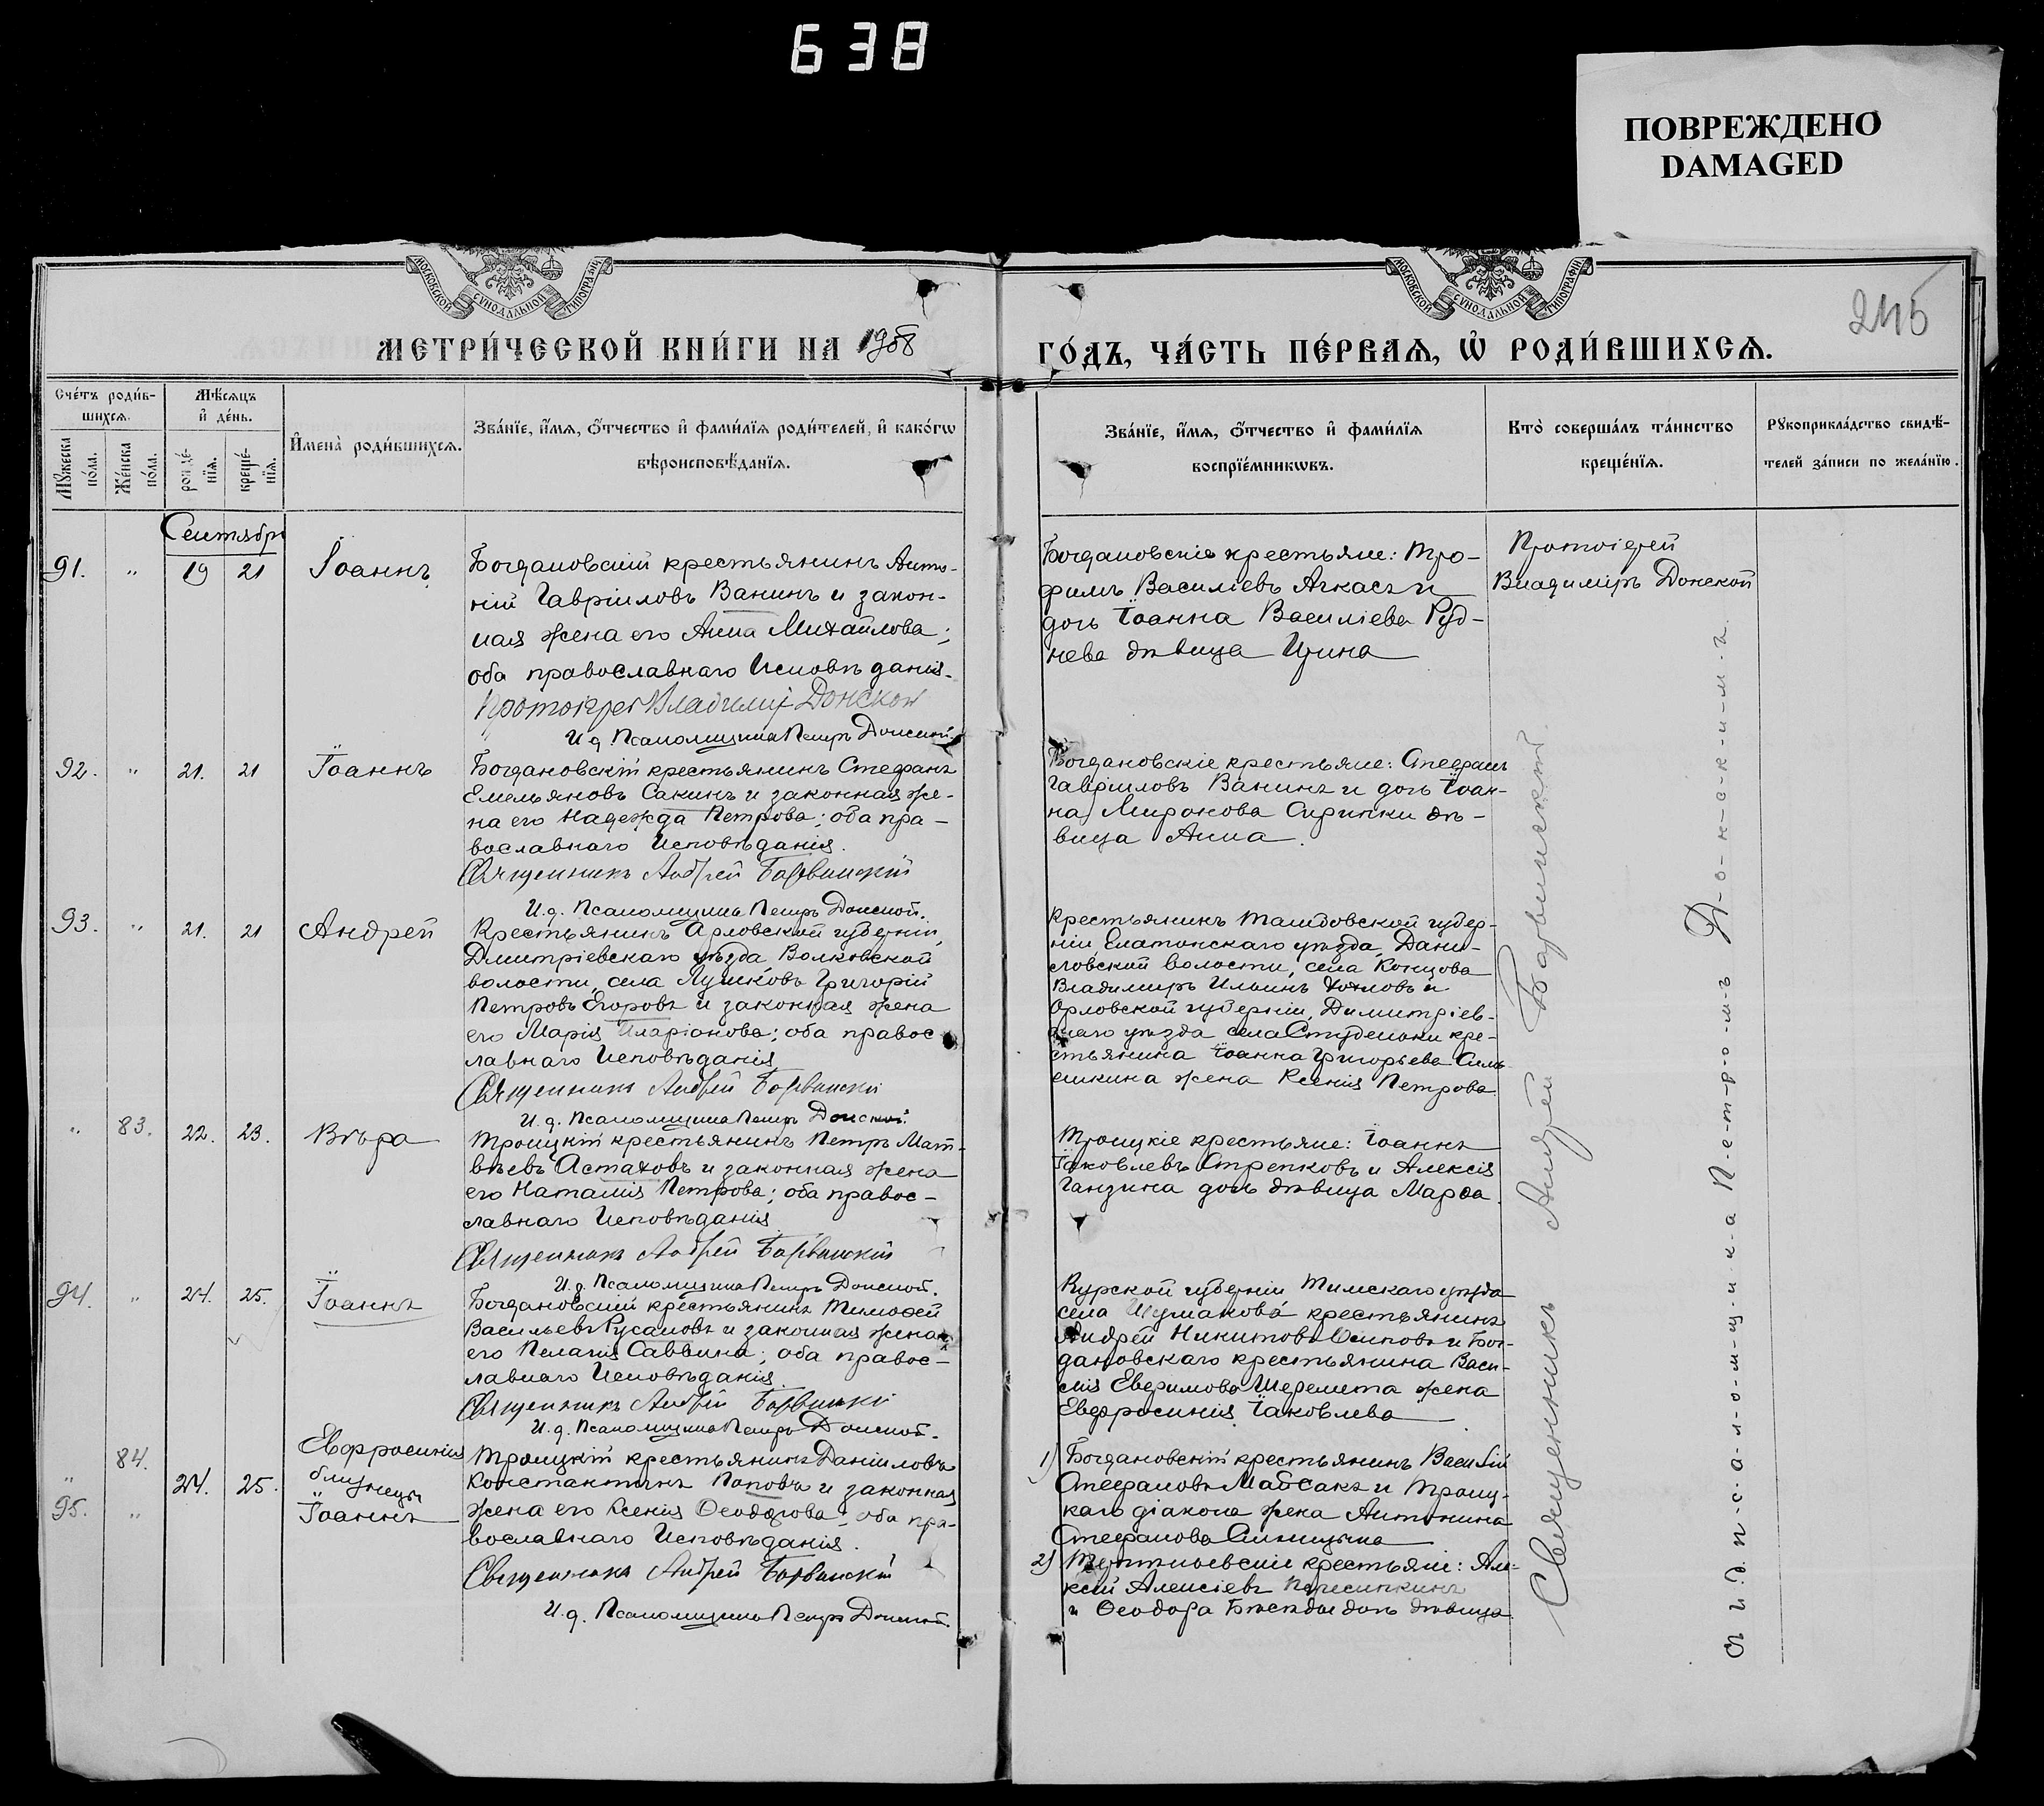 638
ПОВРЕЖДЕНО
DAMAGED
МОСКОВСКОЙ СѴНОДАЛЬНОЙ ТИПОГРАФІИ
МОСКОВСКОЙ СѴНОДАЛЬНОЙ ТИПОГРАФІИ
245
МЕТРИ́ЧЕСКОЙ КНИ́ГИ НА 1908
ГО́ДЪ, ЧА́СТЬ ПЕ́РВАѦ, Ѡ҆ РОДИ́ВШИХСѦ.
Сче́тъ роди́в-
шихсѧ.
Мѣ́сѧцъ
и҆ де́нь.
Мꙋ́жеска по́ла.
Же́нска по́ла.
рожде́-нїѧ.
креще́-нїѧ.
И҆мена̀ роди́вшихсѧ.
Зва́нїе, и҆́мѧ, ѻ҆́тчество и҆ фами́лїѧ роди́телей, и҆ како́гѡ
вѣроисповѣ́данїѧ.
Зва́нїе, и҆́мѧ, ѻ҆́тчество и҆ фами́лїѧ
воспрїе́мникѡвъ.
Кто̀ соверша́лъ та́инство
креще́нїѧ.
Рꙋкоприкла́дство свидѣ́-
телей за́писи по жела́нїю.
Сентябрь
91. " 19 21 Іоаннъ
Богдановскій крестьянинъ Анто-
ній Гавріиловъ Ванинъ и закон-
ная жена его Анна Михайлова;
оба православнаго Исповѣданія.
Протоіерей Владимір Донской
И. д. Псаломщика Петръ Донской.
Богдановскіе крестьяне: Тро-
фимъ Василіевъ Ачкасъ и
дочь Іоанна Василіева Руд-
нева дѣвица Ирина
Протоіерей
Владиміръ Донской
92. " 21. 21 Іоаннъ
Богдановскій крестьянинъ Стефанъ
Емельяновъ Сакинъ и законная же-
на его Надежда Петрова; оба пра-
вославнаго Исповѣданія.
Священникъ Андрей Барвинскій
И. д. Псаломщика Петръ Донской.
Богдановскіе крестьяне: Стефанъ
Гавріиловъ Ванинъ и дочь Іоан-
на Миронова Скрипки дѣ-
вица Анна.
93. " 21. 21 Андрей
Крестьянинъ Орловской губерніи,
Дмитріевскаго уѣзда Волковской
волости, села Лушковъ Григорій
Петровъ Егоровъ и законная жена
его Марія Иларіонова; оба правос
лавнаго Исповѣданія
Священникъ Андрей Барвинскій
И. д. Псаломщика Петръ Донской.
Крестьянинъ Тамбовской губер-
ніи, Елатомскаго уѣзда, Дани-
ловской волости, села Концова
Владимиръ Ильинъ и
Орловской губерніи, Димитріев-
скаго уѣзда села Студенки кре-
стьянина Іоанна Григорьева
жена Ксенія Петрова
" 83. 22. 23. Вѣра
Троицкій крестьянинъ Петръ Мат-
вѣевъ Астаховъ и законная жена
его Наталія Петрова; оба правос-
лавнаго Исповѣданія
Священникъ Андрей Барвинскій
И. д. Псаломщика Петръ Донской.
Троицкіе крестьяне: Іоаннъ
Іаковлевъ Стрепковъ и Алексія
Ганзина дочь дѣвица Марѳа.
94. " 24. 25. Іоаннъ
Богдановскій крестьянинъ Тимоѳей
Васильевъ Русановъ и законная жена
его Пелагія Саввина; оба правос-
лавнаго Исповѣданія.
Священникъ Андрей Барвинскій
И. д. Псаломщика Петръ Донской.
Курской губерніи Тимскаго уѣзда
села Шумакова крестьянинъ
Андрей Никитовъ Осиповъ и Бог-
дановскаго крестьянина Васи-
лія Евфимова Шеремета жена
Евфросинія Іаковлева
84. Евфросинія
" 24. 25. близнецы
95. " Іоаннъ
Троицкій крестьянинъ Даніиловъ
Константинъ Поповъ и законная
жена его Ксенія Ѳеодорова; оба пра-
вославнаго Исповѣданія.
Священникъ Андрей Барвинскій
И. д. Псаломщика Петръ Донской.
1) Богдановскій крестьянинъ Василій
Стефановъ Майсакъ и Троиц-
каго діакона жена Антонина
Стефанова
2) крестьяне: Але-
ксій Алексіевъ Пересипкинъ
и Ѳеодора дочь дѣвица
Священникъ Андрей Барвинскій
и и. д. п-с-а-л-о-м-щ-и-к-а П-е-т-р-о-м-ъ Д-о-н-с-к-и-м-ъ.